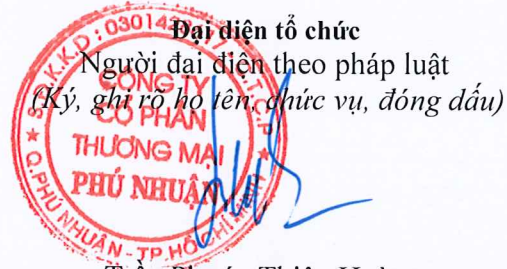 Đại diện tổ chức
Người đại diện theo pháp luật
(Ký, ghi rõ họ tên, chức vụ, đóng dấu)
CÔNG TY
CỔ PHẦN
THƯƠNG MẠI
PHÚ NHUẬN
Q.PHÚ NHUẬN - TP.HỒ CHÍ MINH